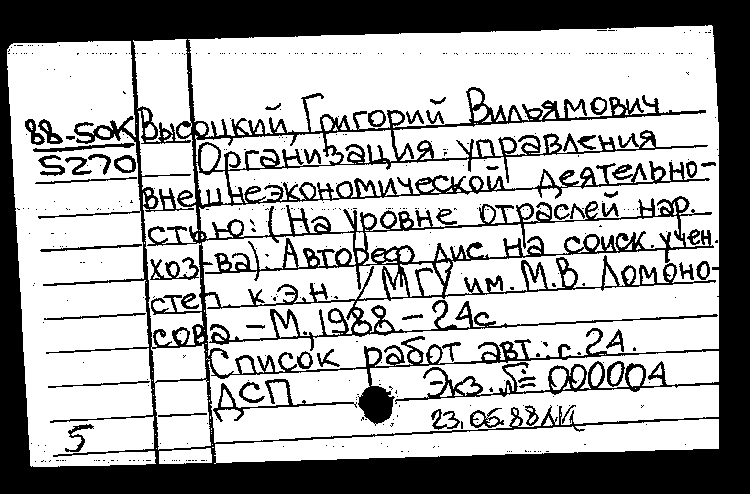 88-50К Высоцкий, Григорий Вильямович.
5270 Организация управления
внешнеэкономической деятельно-
стью: (На уровне отраслей нар.
хоз-ва): Автореф. дис. на соиск. учен.
степ. к.э.н. / МГУ им. М.В. Ломоно-
сова. – М., 1988. – 24с.
Список работ авт.: с. 24.
ДСП. Экз. № 000004
23.06.88
5